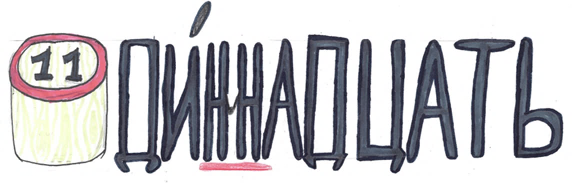 11 ДИ́ННАДЦАТЬ